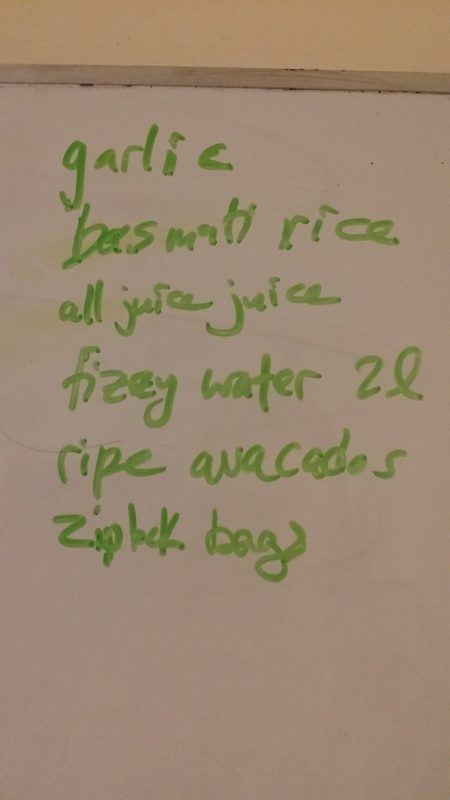 garlic
basmati rice
all juice juice
fizzy water 2l
ripe avacados
ziplock bags